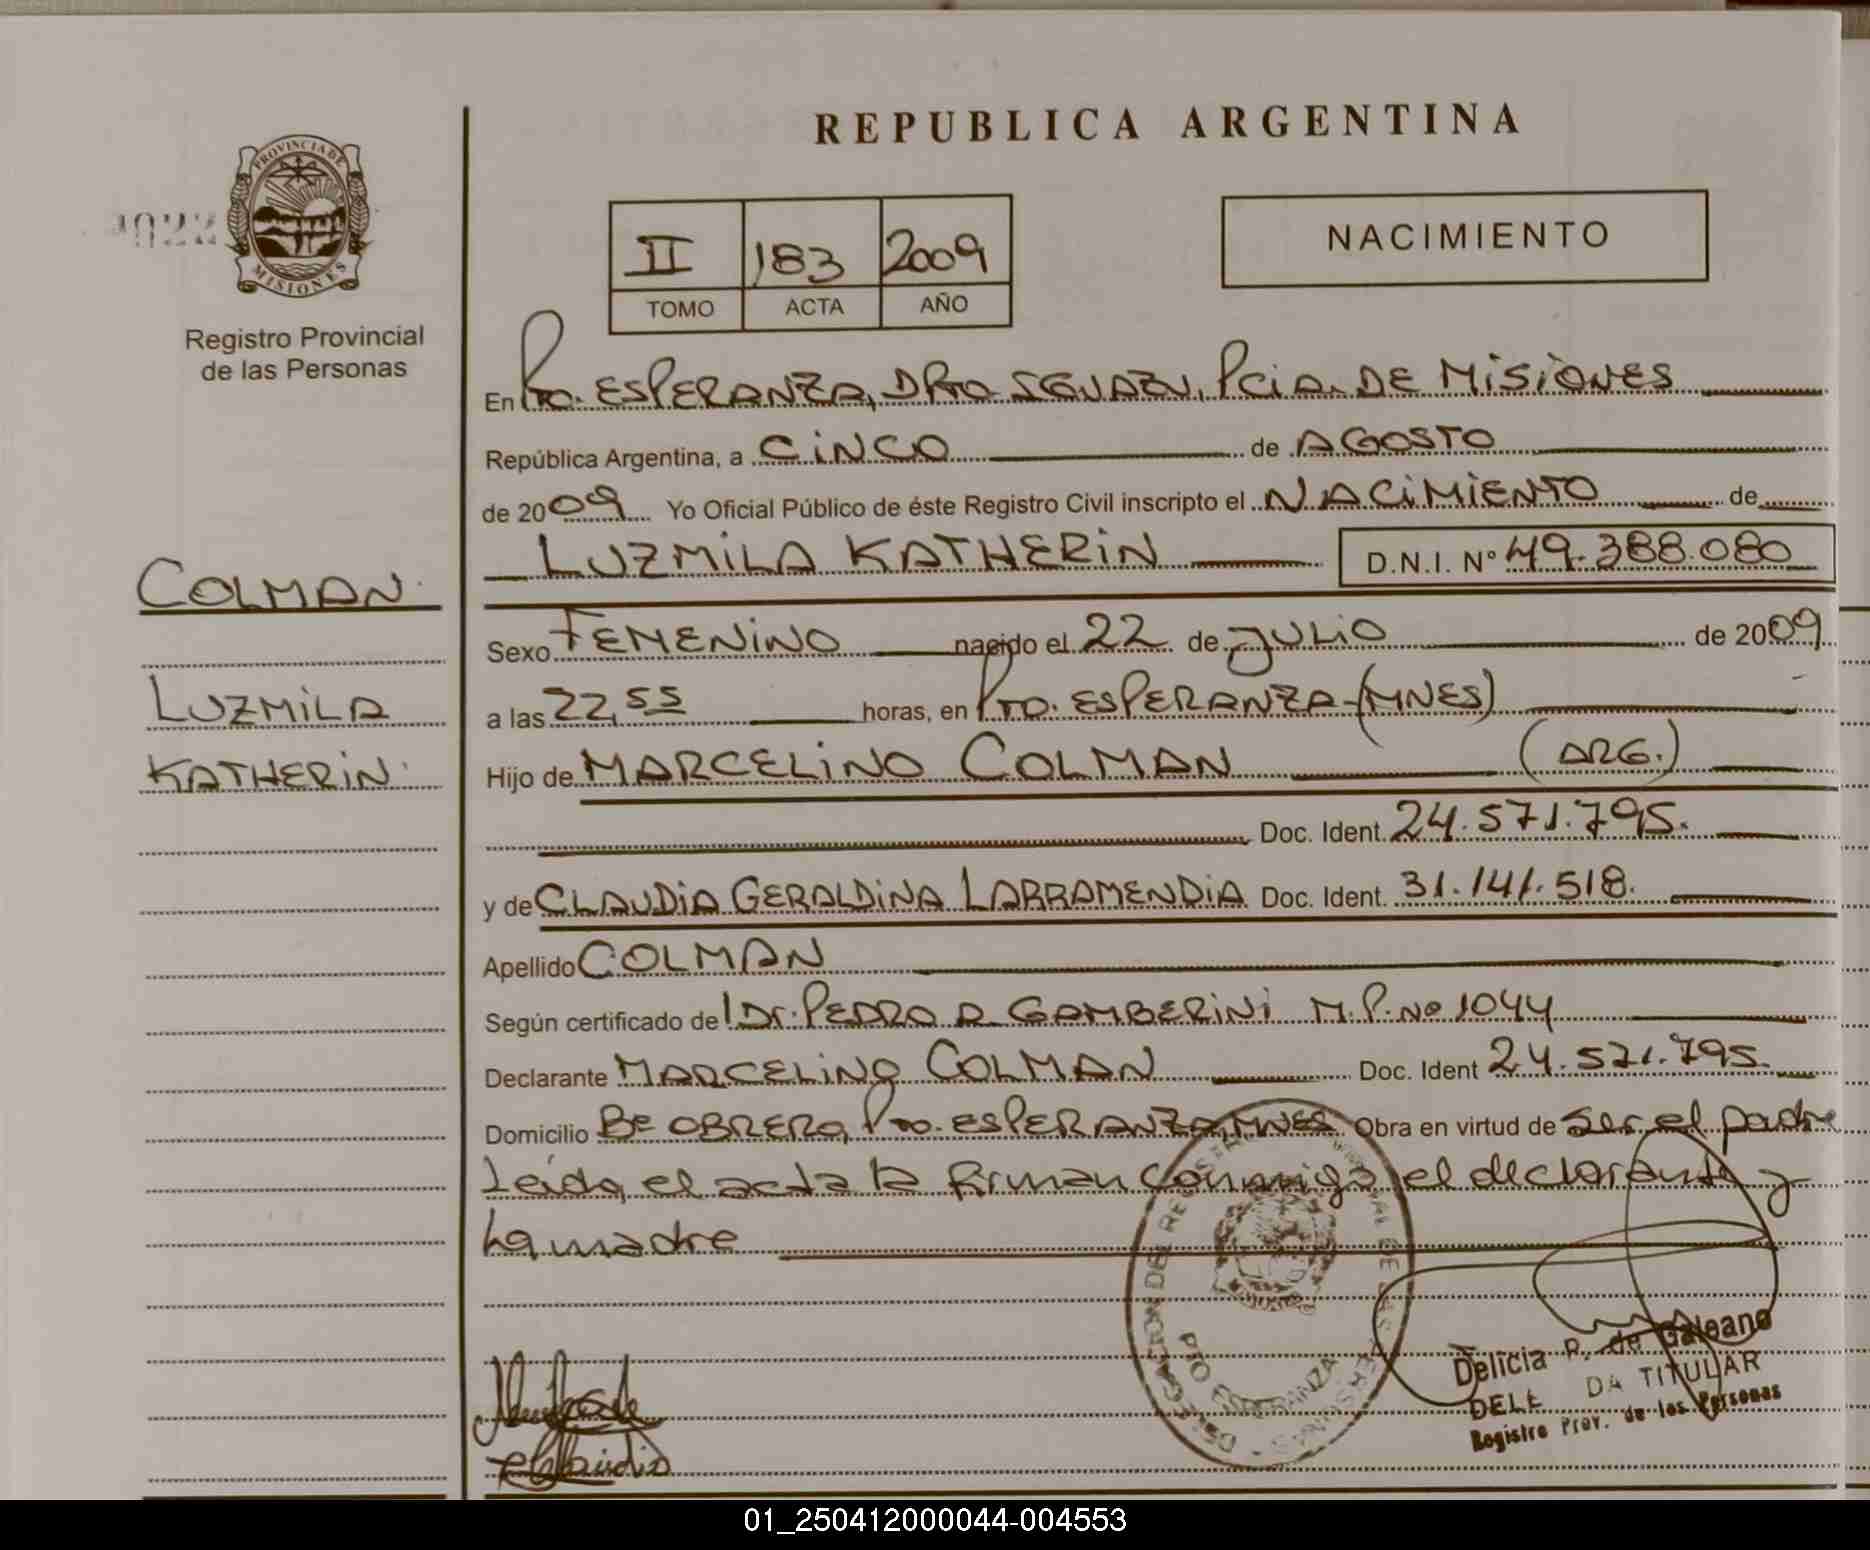 REPUBLICA ARGENTINA
PROVINCIA DE
MISIONES
Registro Provincial
de las Personas
II 183 2009
TOMO ACTA AÑO
NACIMIENTO
En Pto. ESPERANZA, DPto IGUAZU, PCIA. DE MISIONES
República Argentina, a CINCO de AGOSTO
de 2009 Yo Oficial Público de éste Registro Civil inscripto el NACIMIENTO de
LUZMILA KATHERIN D.N.I. Nº 49.388.080
COLMAN
Sexo FEMENINO nacido el 22 de JULIO de 2009
LUZMILA
a las 22,55 horas, en Pto. ESPERANZA-(MNES)
KATHERIN
Hijo de MARCELINO COLMAN (ARG.)
Doc. Ident. 24.571.795.
y de CLAUDIA GERALDINA LARRAMENDIA Doc. Ident. 31.141.518.
Apellido COLMAN
Según certificado del Dr. PEDRO A GAMBERINI M.P. Nº 1044
Declarante MARCELINO COLMAN Doc. Ident 24.571.795.
Domicilio Bº OBRERO, Pto. ESPERANZA, MNES Obra en virtud de ser el padre
Leída, el acta la firman conmigo el declarante y
la madre
DELEGACION DE REGISTRO PROVINCIAL DE LAS PERSONAS
PTO ESPERANZA
Delicia P. de Galeano
DA TITULAR
Registro Prov. de las Personas
Claudia
01_250412000044-004553